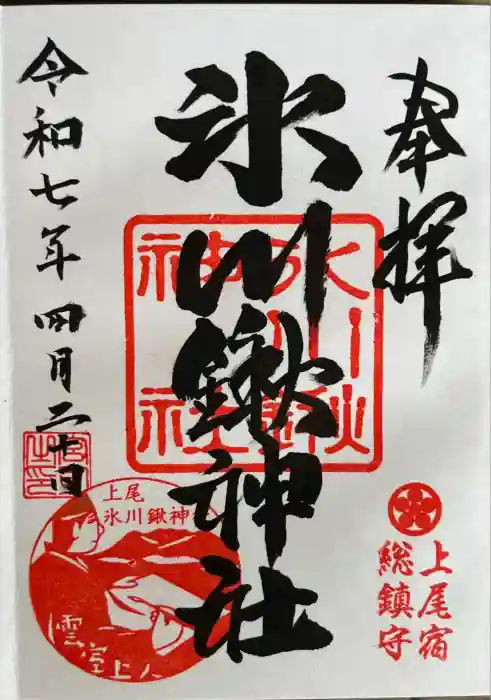 奉拝
上尾宿
総鎮守
氷川鍬神社
氷川鍬神社
令和七年四月二十日
上尾
氷川鍬神社
雲室上人